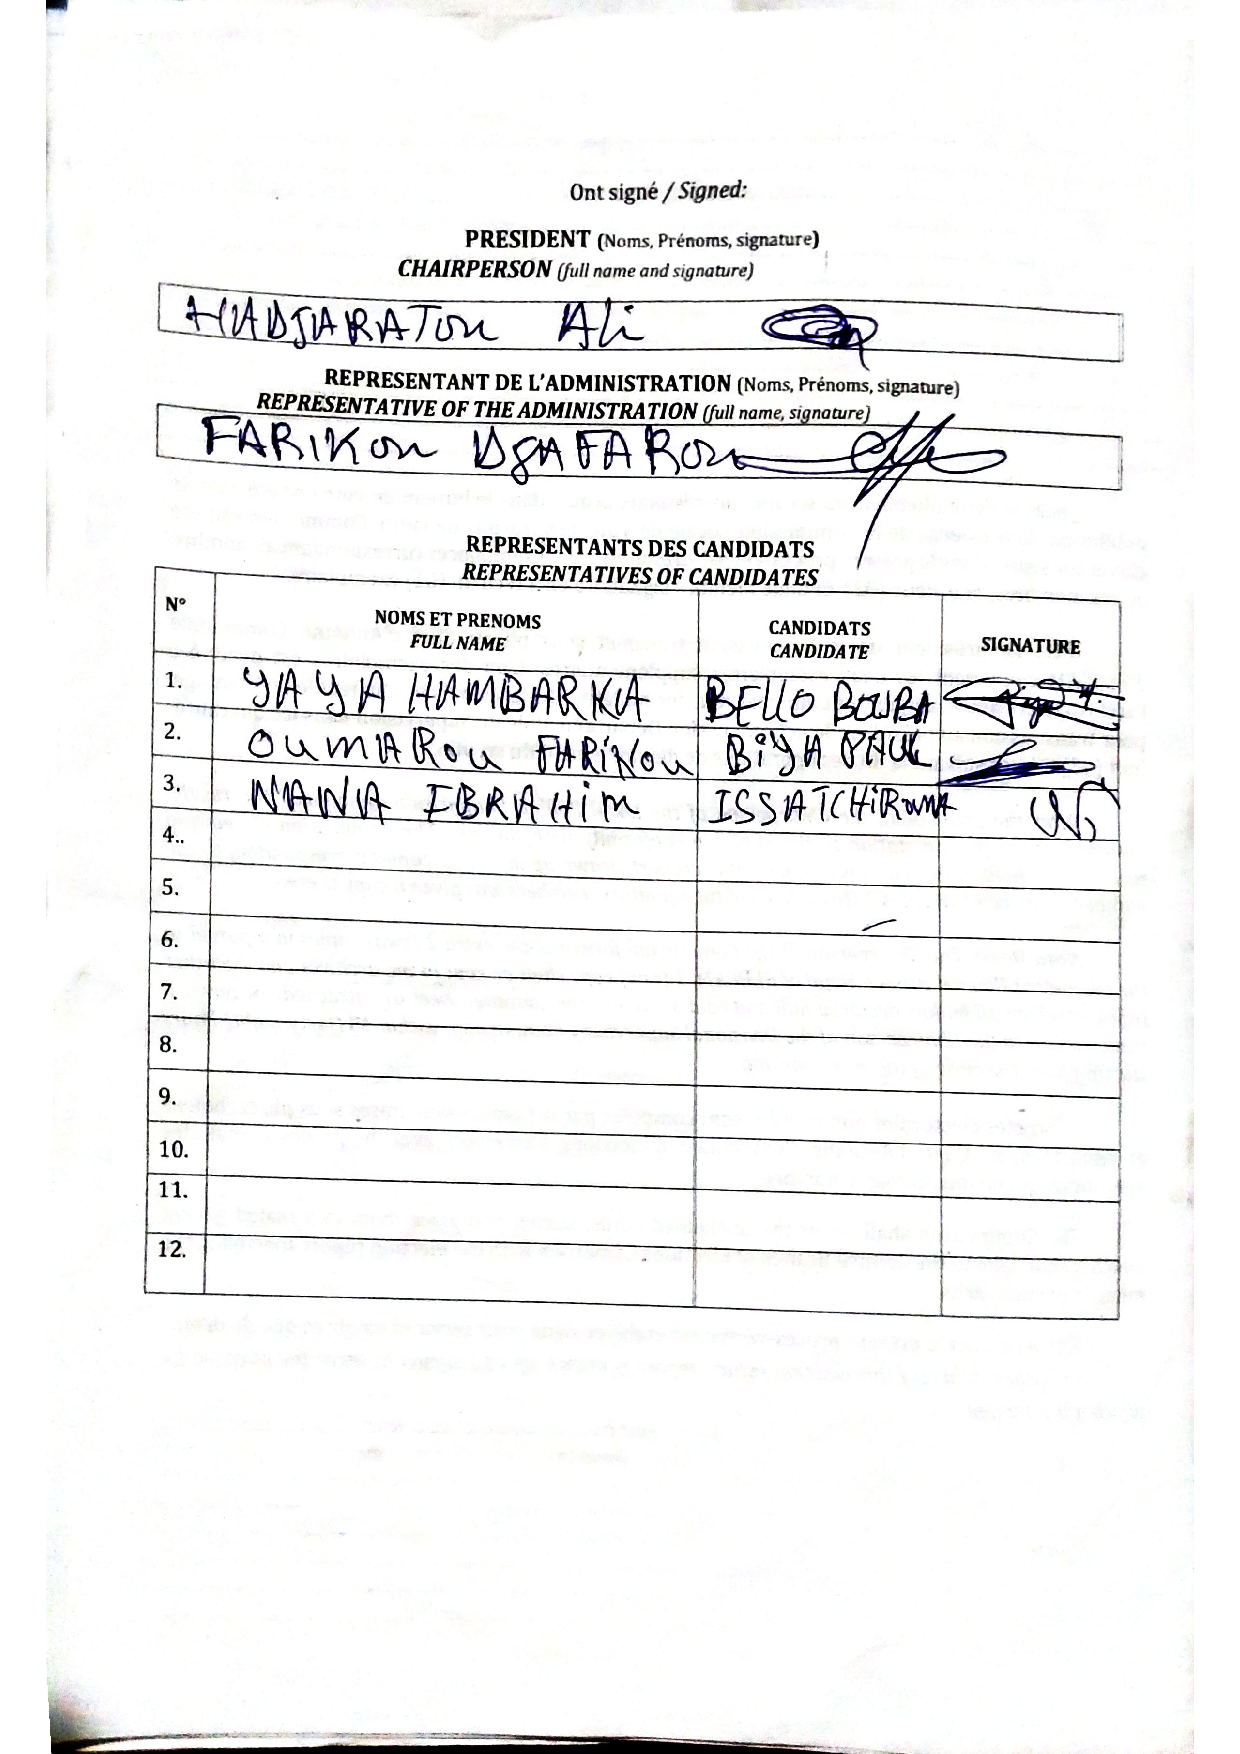 Ont signé / Signed:
PRESIDENT (Noms, Prénoms, signature)
CHAIRPERSON (full name and signature)
HADJARATOU Ali
REPRESENTANT DE L'ADMINISTRATION (Noms, Prénoms, signature)
REPRESENTATIVE OF THE ADMINISTRATION (full name, signature)
FARIKOU DJAFAROU
REPRESENTANTS DES CANDIDATS
REPRESENTATIVES OF CANDIDATES
N° NOMS ET PRENOMS FULL NAME CANDIDATS CANDIDATE SIGNATURE
1. YAYA HAMBARKA BELLO BOUBA
2. OUMAROU FARIKOU BIYA PAUL
3. NANA IBRAHIM ISSA TCHIROMA
4..
5.
6.
7.
8.
9.
10.
11.
12.